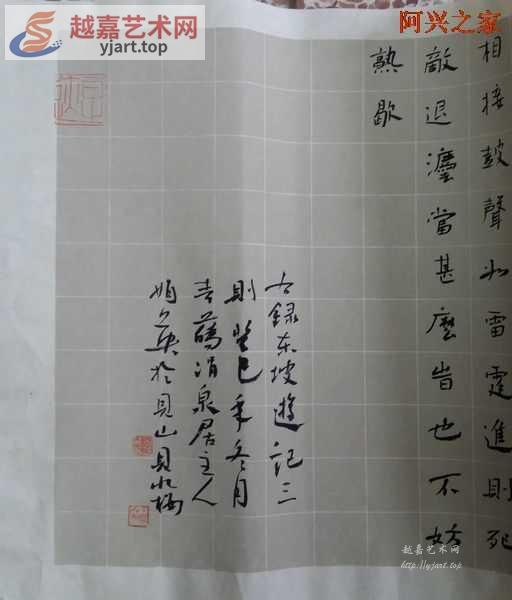 越嘉艺术网
yjart.top
阿兴之家
相接鼓聲如雷霆進則死
敵退灋當甚麼旹也不妨
熟歇
右録东坡遊記三
則癸巳年冬月
涓泉居主人
英於見山見水
越嘉艺术网
http://yjart.top